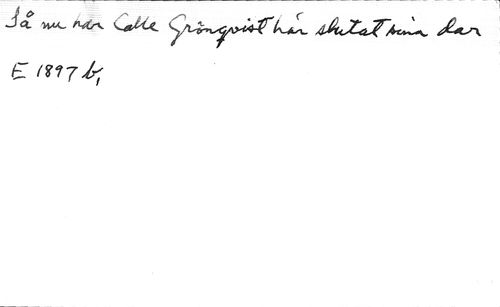 Så nu har Calle Grönqvist här slutat sina dar
E 1897 b,